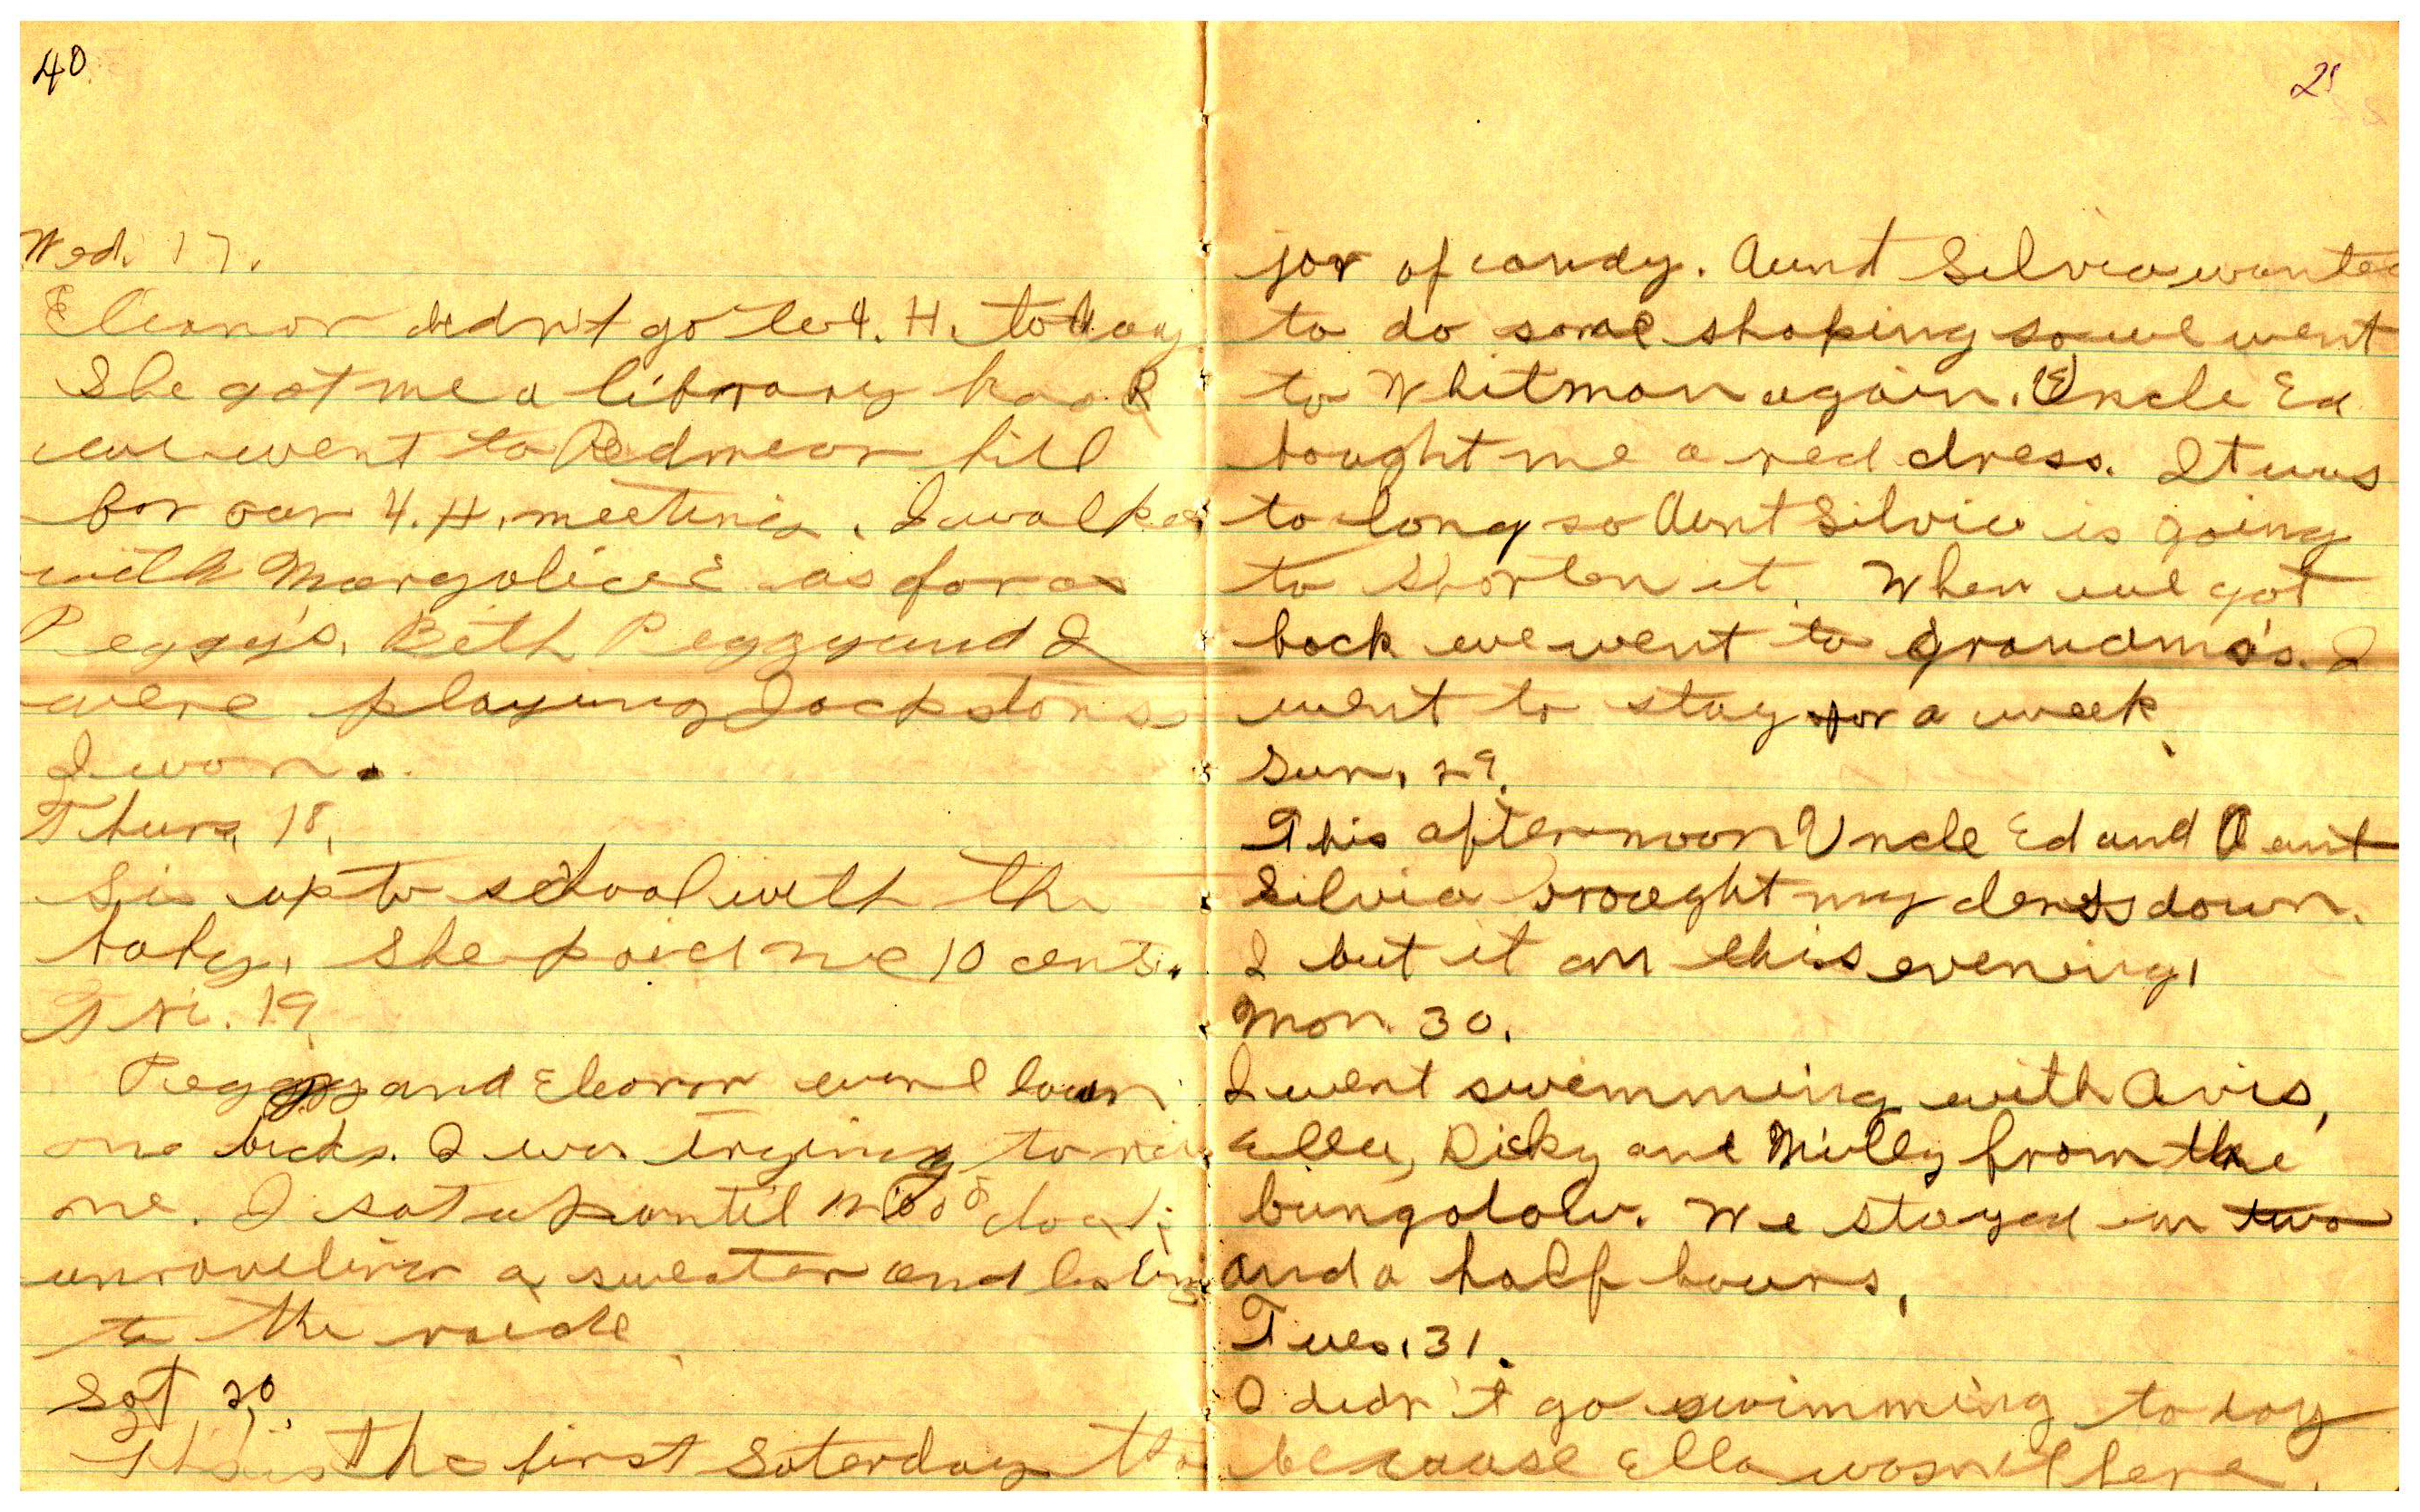 40
Wed. 17.
Eleanor didn't go to 4. H. today
She got me a library book
we went to Redmear hill
for our 4. H. meeting. I walked
with Margalice as far as
Peggy's. Beth Peggy and I
were playing Jackstons
I won.
Thurs, 18,
Sis up to school with the
baby. She paid me 10 cents.
Fri. 19
Peggy and Eleanor down
one bicks. I was trying to
me. I sat up until
unraveling a sweater and
to the raido
Sat 20.
This is the first Saterday
25
jar of candy. Aunt Silvia wanted
to do some shoping so we went
to Whitman again. Uncle Ed
bought me a red dress. It was
to long so Aunt Silvia is going
to shorten it. When we got
back we went to grandma's. I
went to stay for a week.
Sun, 29.
This afternoon Uncle Ed and Aunt
Silvia brought my dress down.
I but it on this evening,
Mon. 30.
I went swimming with Avis,
Ella, Dicky and Milly from the
bungalow. We stayed in two
and a half hours,
Tues, 31.
I didn't go swimming to day
because Ella wasn't here.